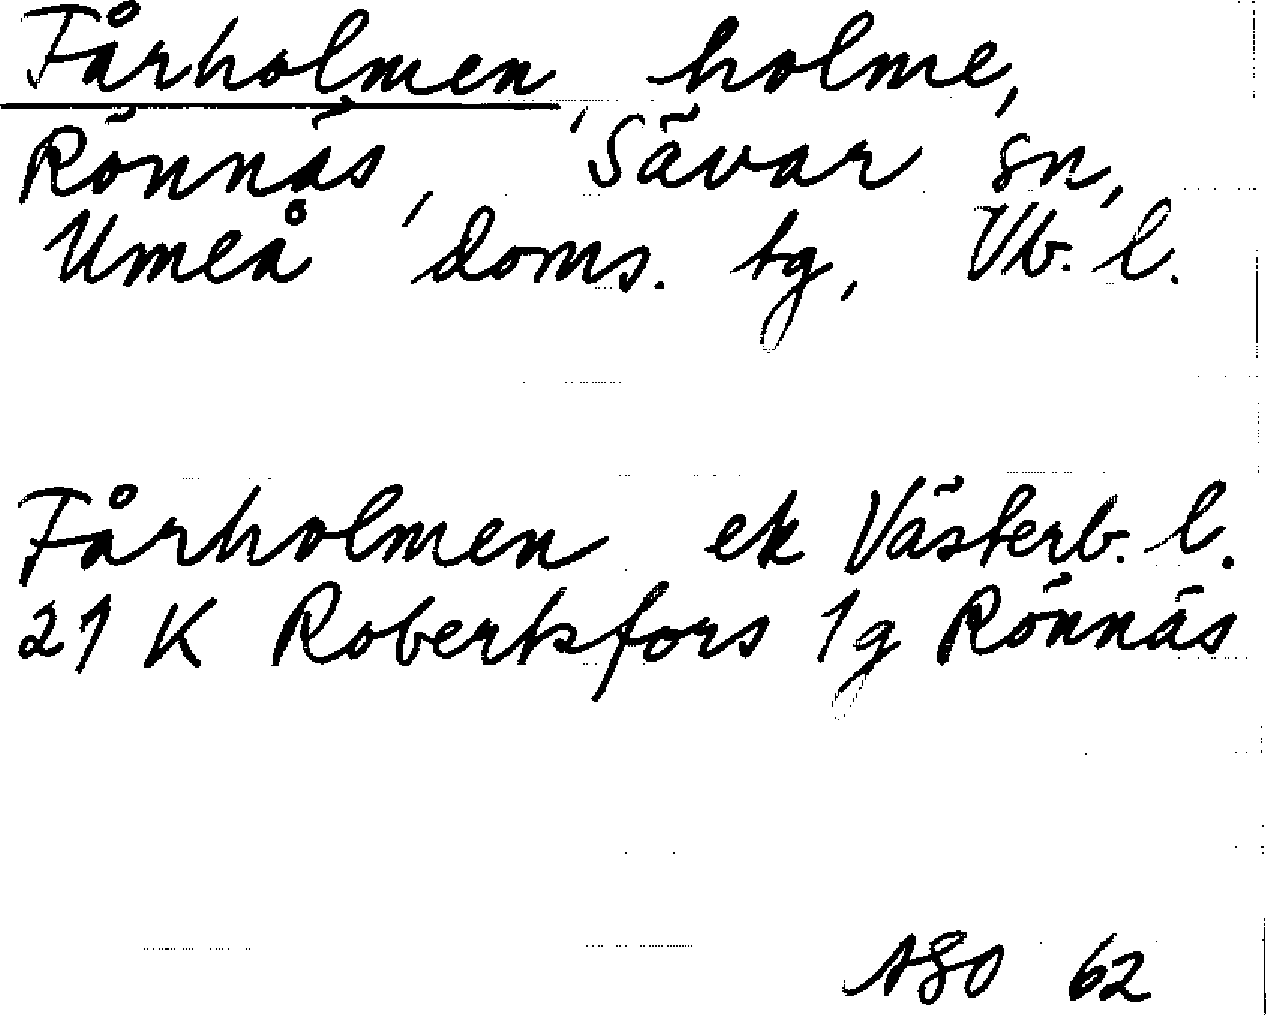 Fårholmen, holme,
Rönnäs, Sävar sn,
Umeå doms. tg, Vb. l.
Fårholmen ek Västerb. l.
21 K Robertsfors 1g Rönnäs
ASO 62